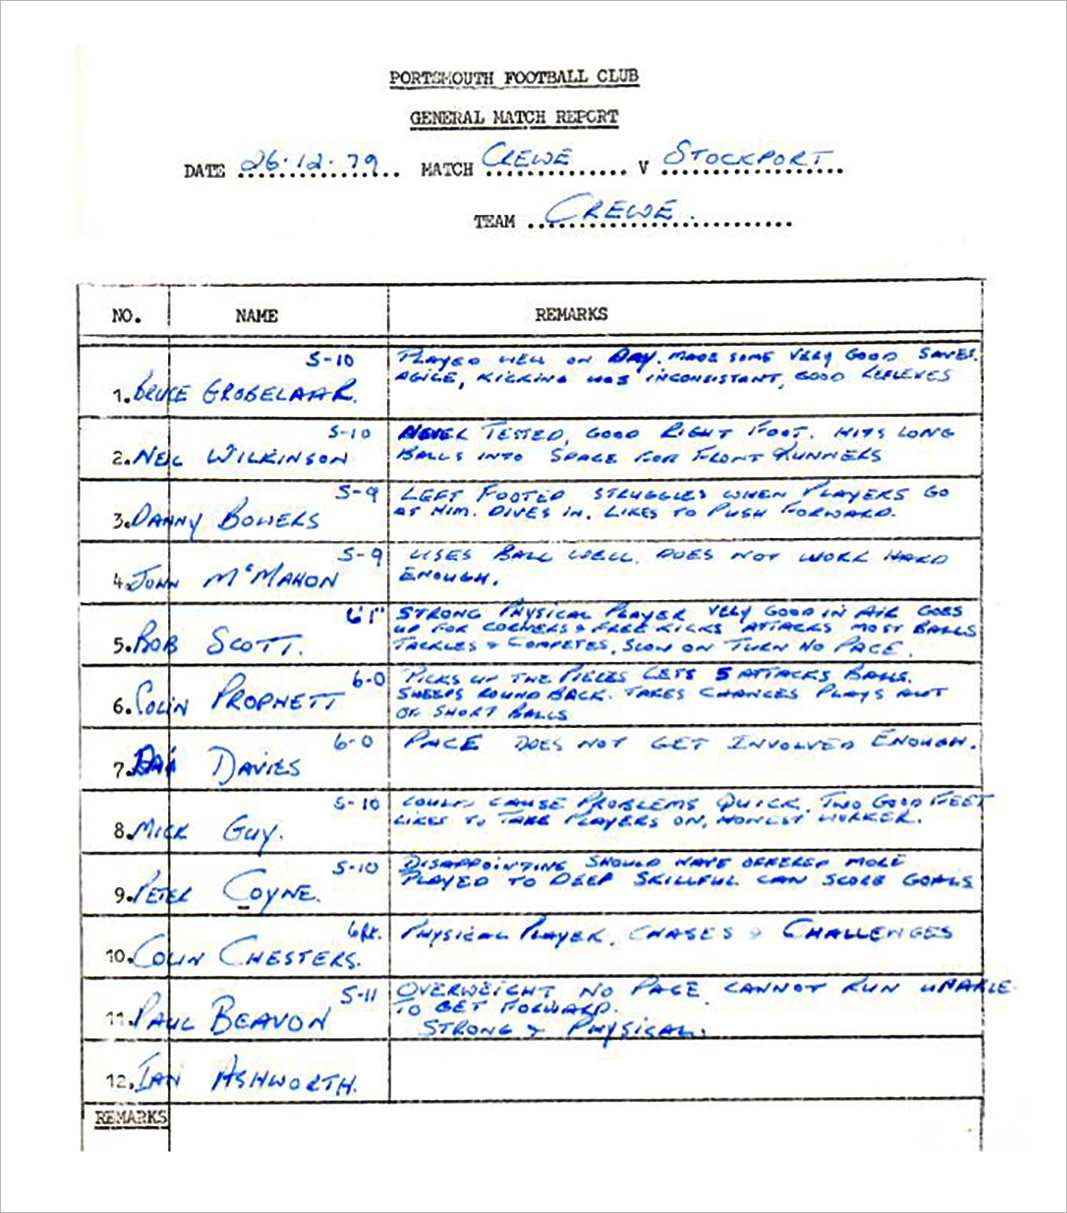 PORTSMOUTH FOOTBALL CLUB
GENERAL MATCH REPORT
DATE 26.12.79 MATCH CREWE V STOCKPORT
TEAM CREWE.
NO. NAME REMARKS
1. BRUCE GROBELAAR. 5-10 PLAYED WELL ON DAY. MADE SOME VERY GOOD SAVES.
AGILE, KICKING WAS INCONSISTANT, GOOD REFLEXES
2. NEIL WILKINSON 5-10 NEVER TESTED, GOOD RIGHT FOOT. HITS LONG
BALLS INTO SPACE FOR FRONT RUNNERS
3. DANNY BOWERS 5-9 LEFT FOOTED STRUGGLES WHEN PLAYERS GO
AT HIM. DIVES IN. LIKES TO PUSH FORWARD.
4. JOHN McMAHON 5-9 USES BALL WELL. DOES NOT WORK HARD
ENOUGH.
5. BOB SCOTT. 6'1" STRONG PHYSICAL PLAYER VERY GOOD IN AIR GOES
UP FOR CORNERS & FREE KICKS ATTACKS MOST BALLS
TACKLES & COMPETES, SLOW ON TURN NO PACE.
6. COLIN PROPHETT 6-0 PICKS UP THE PIECES LETS 5 ATTACKS BALLS.
SWEEPS ROUND BACK. TAKES CHANCES PLAYS OUT
OF SHORT BALLS
7. DAI DAVIES 6-0 PACE DOES NOT GET INVOLVED ENOUGH.
8. MICK GUY. 5-10 COULD CAUSE PROBLEMS QUICK, TWO GOOD FEET
LIKES TO TAKE PLAYERS ON, HONEST WORKER.
9. PETER COYNE. 5-10 DISAPPOINTING SHOULD HAVE OFFERED MORE
PLAYED TO DEEP SKILLFUL CAN SCORE GOALS
10. COLIN CHESTERS. 6ft. PHYSICAL PLAYER, CHASES & CHALLENGES
11. PAUL BEAVON 5-11 OVERWEIGHT NO PACE CANNOT RUN UNABLE
TO GET FORWARD.
STRONG & PHYSICAL.
12. IAN ASHWORTH.
REMARKS